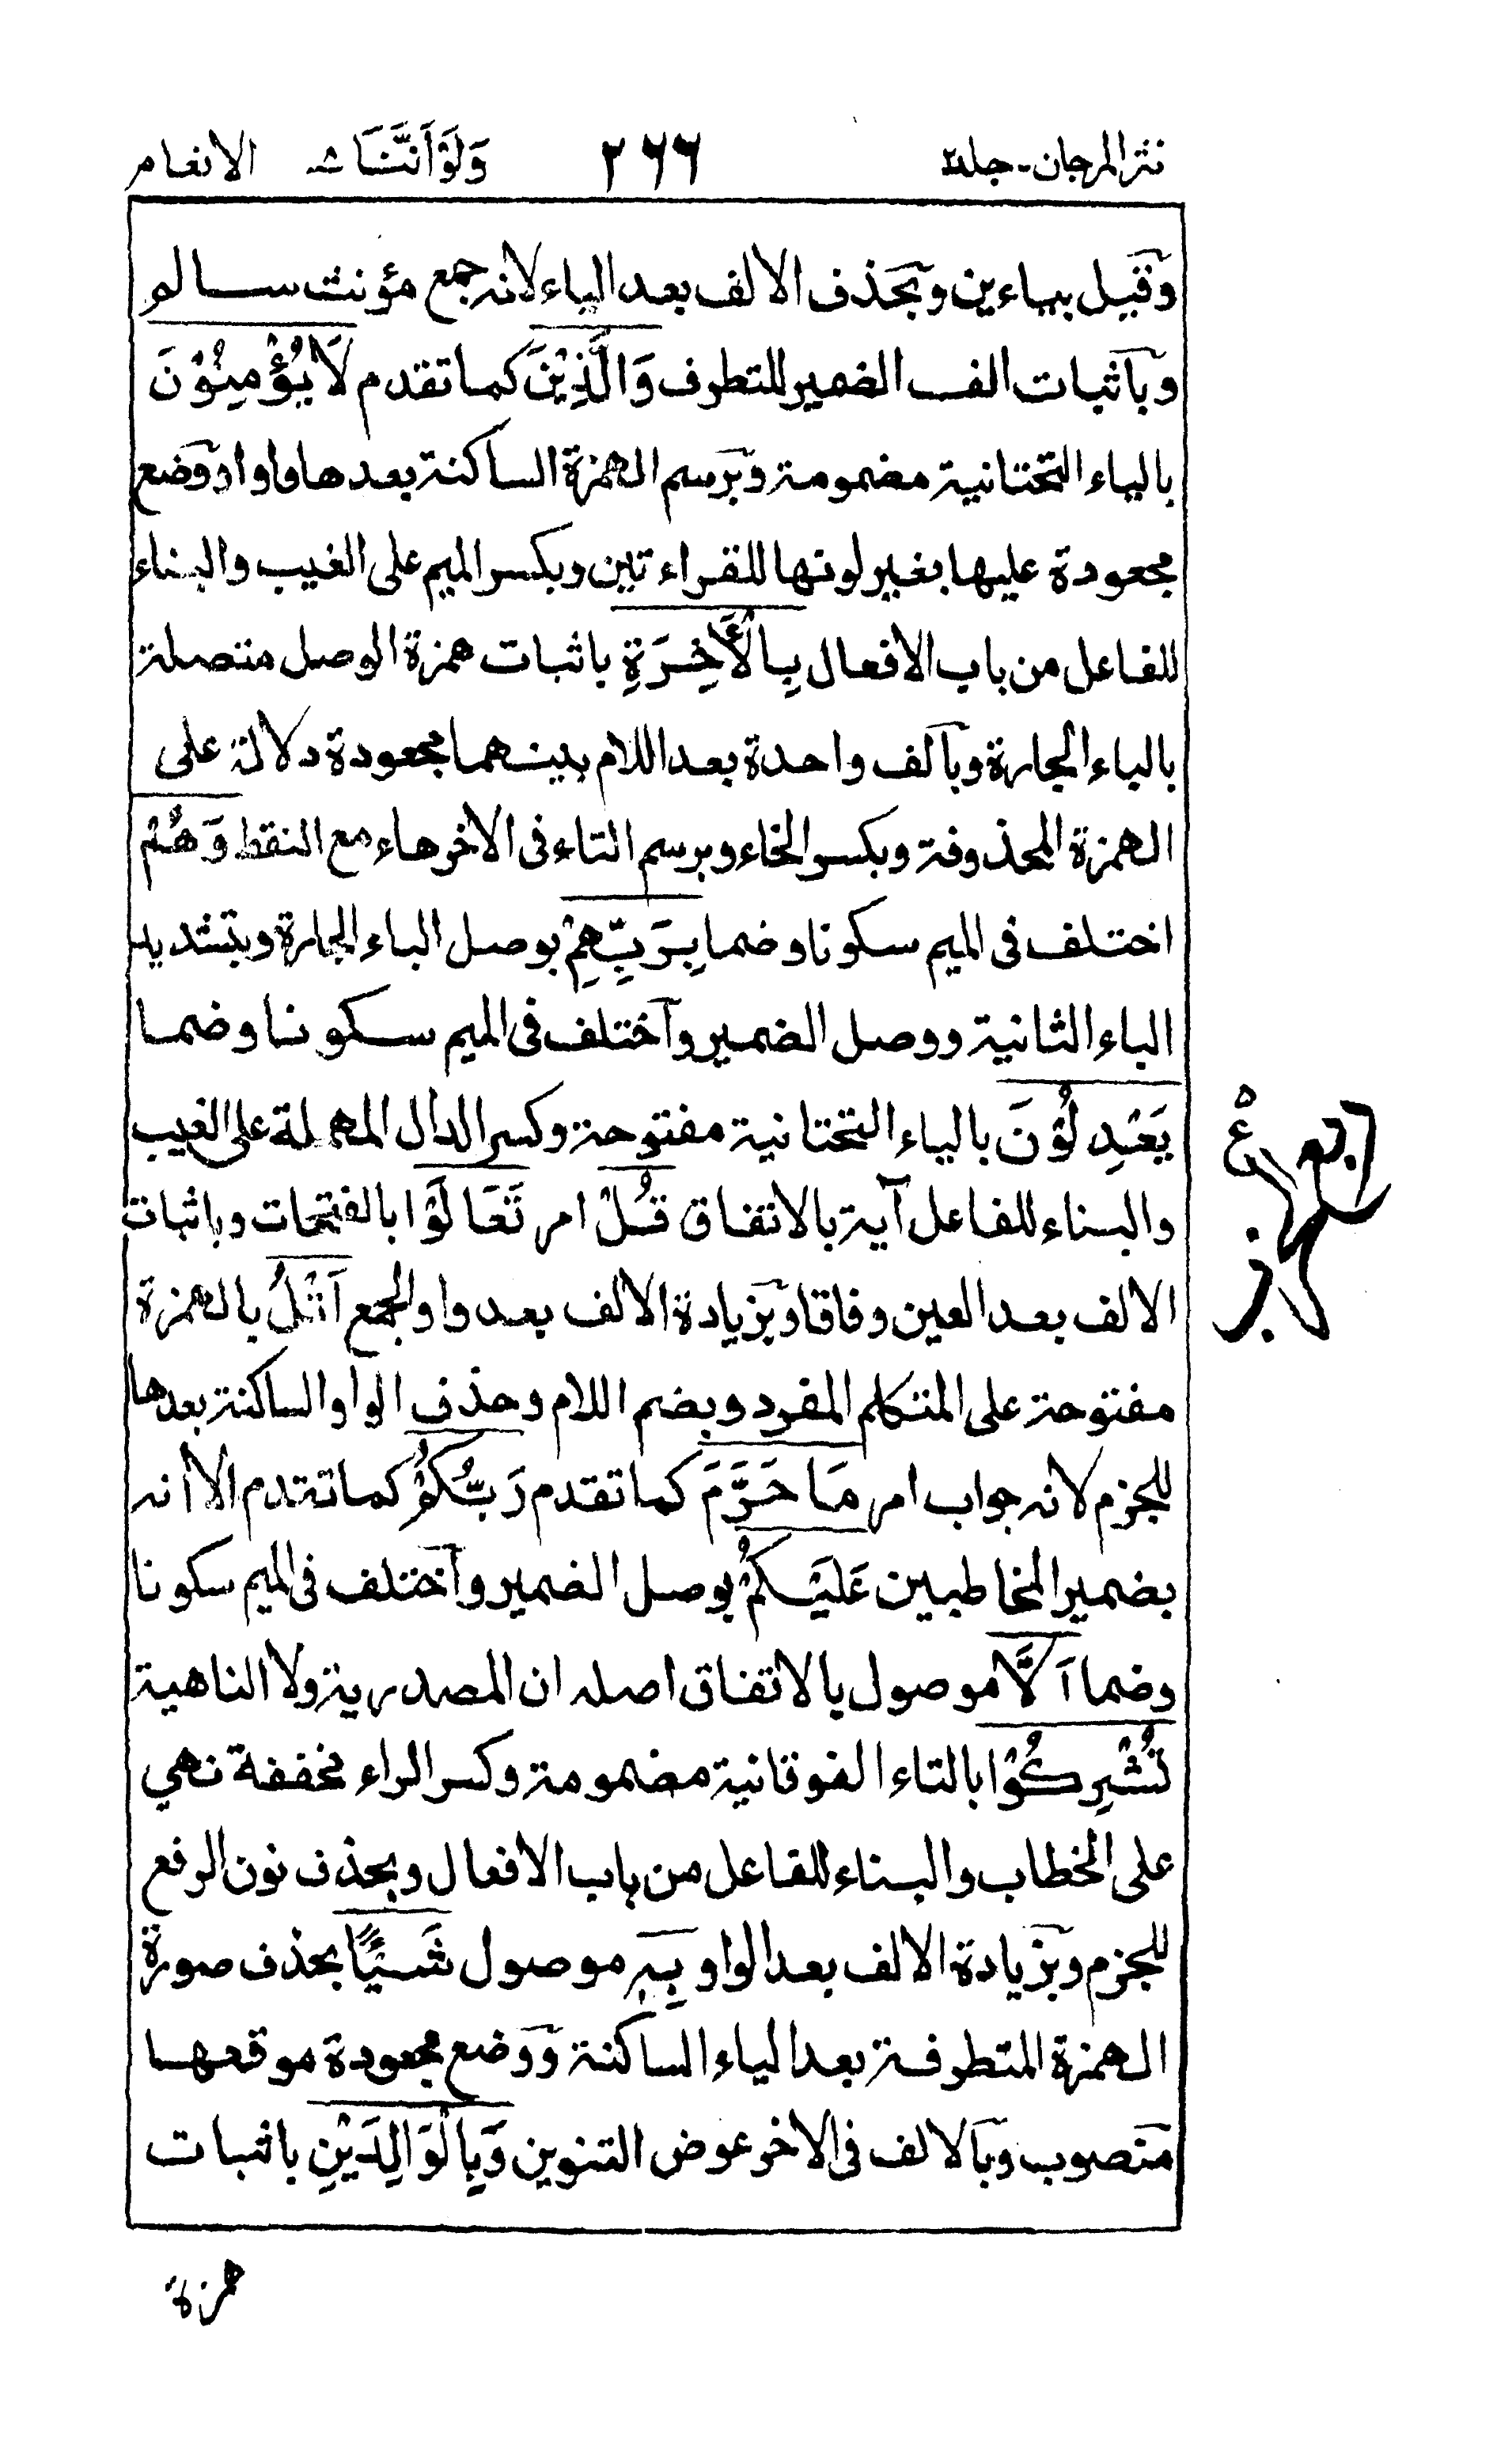 نثر المرجان - جلد٢ ٢٦٦ وَلَوْ اَنَّنَا ٨ الانعام
وقيل بياءين وبحذف الالف بعد الياء لانه جمع مؤنث سالم
وبآثبات الف الضمير للتطرف وَالَّذِيْنَ كما تقدم لَا يُؤْمِنُوْنَ
بالياء التحتانية مضمومة وبرسم الهمزة الساكنة بعدها واوا ووضع
مجعودة عليها بغير لونها للقراءتين وبكسر الميم على الغيب والبناء
للفاعل من باب الافعال بِالْاٰخِرَةِ باثبات همزة الوصل متصلة
بالباء الجارة وبآلف واحدة بعد اللام بينهما مجعودة دلالة على
الهمزة المحذوفة وبكسر الخاء وبرسم التاء فى الاخر هاء مع النقط وَهُمْ
اختلف فى الميم سكونا وضما بِرَبِّهِمْ بوصل الباء الجارة وبتشديد
الباء الثانية ووصل الضمير وآختلف فى الميم سكونا وضما
يَعْدِلُوْنَ بالياء التحتانية مفتوحة وكسر الدال المهملة على الغيب
والبناء للفاعل آية بالاتفاق قُلْ امر تَعَالَوْا بالفتحات وباثبات
الالف بعد العين وفاقا وبزيادة الالف بعد واو الجمع اَتْلُ بالهمزة
مفتوحة على المتكلم المفرد وبضم اللام وحذف الواو الساكنة بعدها
للجزم لانه جواب امر مَا حَرَّمَ كما تقدم رَبُّكُمْ كما تقدم الا انه
بضمير المخاطبين عَلَيْكُمْ بوصل الضمير وآختلف فى الميم سكونا
وضما اَلَّا موصول بالاتفاق اصله ان المصدرية ولا الناهية
تُشْرِكُوْا بالتاء الفوقانية مضمومة وكسر الراء مخففة نهي
على الخطاب والبناء للفاعل من باب الافعال وبحذف نون الرفع
للجزم وبزيادة الالف بعد الواو بِهٖ موصول شَيْئًا بحذف صورة
الهمزة المتطرفة بعد الياء الساكنة ووضع مجعودة موقعها
منصوب وبالالف فى الاخر عوض التنوين وَبِالْوَالِدَيْنِ باثبات
همزة